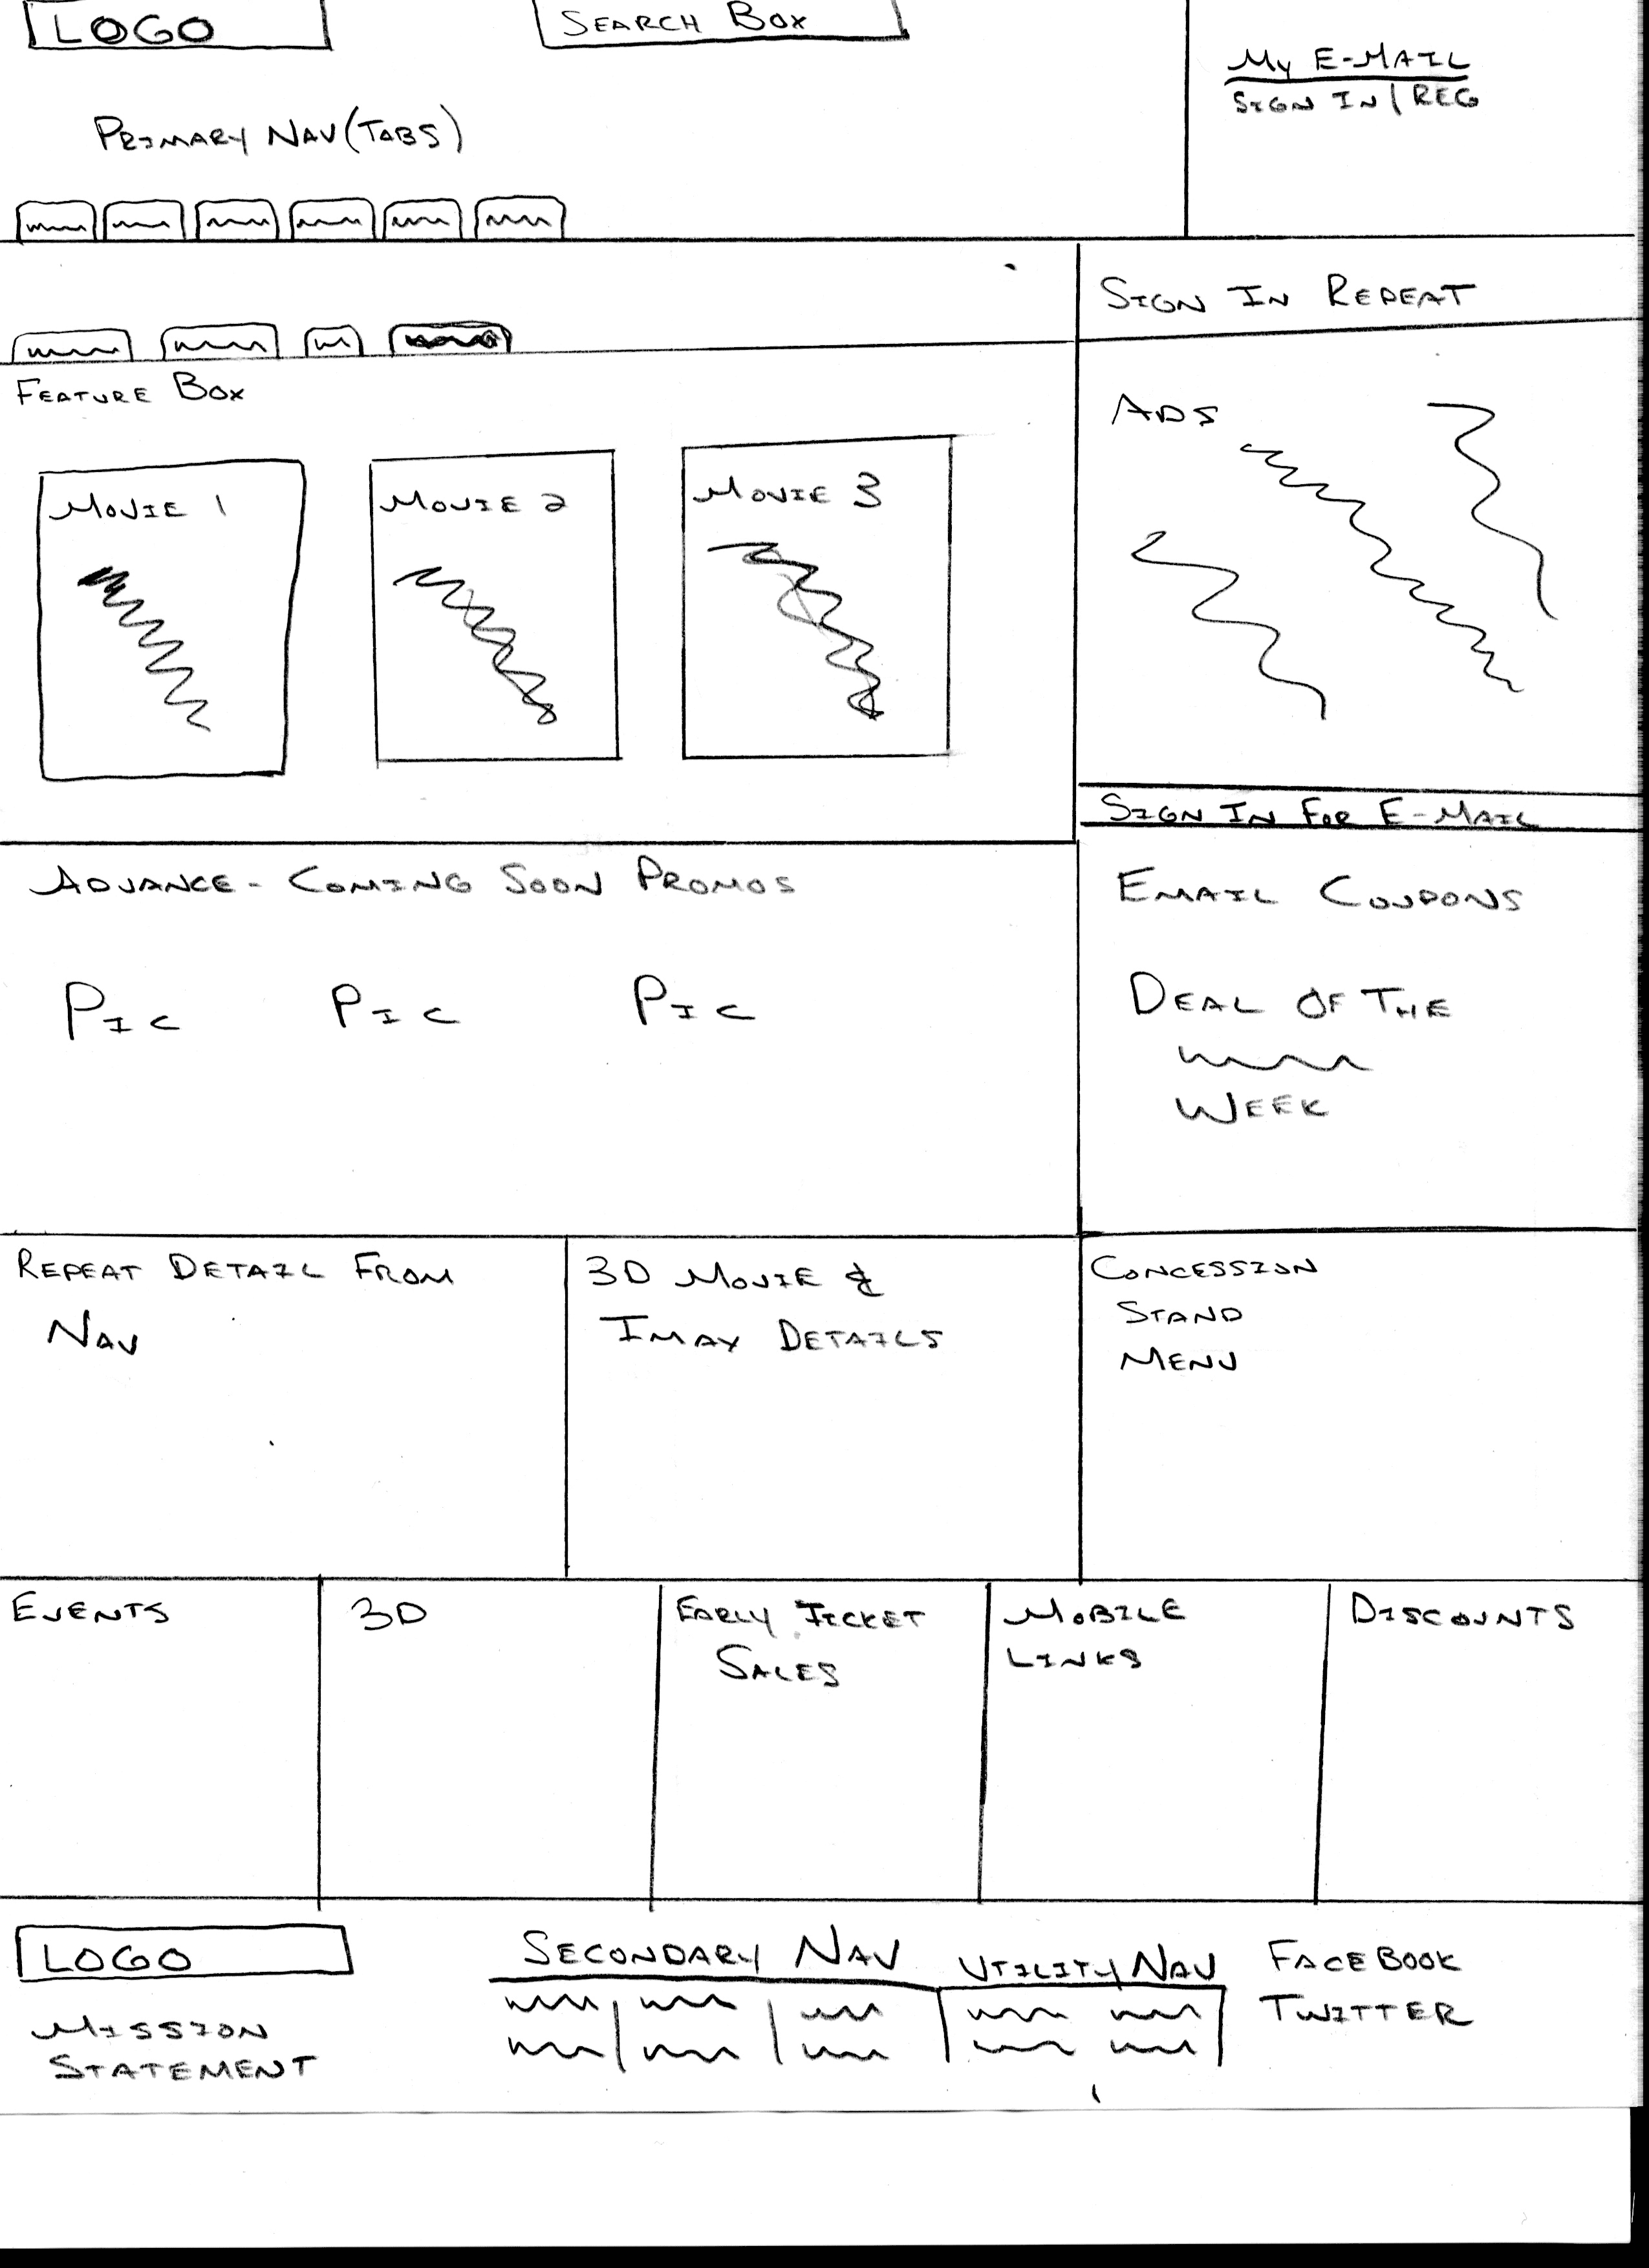 LOGO
SEARCH BOX
MY E-MAIL
SIGN IN | REG
PRIMARY NAV (TABS)
SIGN IN REPEAT
FEATURE BOX
ADS
MOVIE 1
MOVIE 2
MOVIE 3
SIGN IN FOR E-MAIL
ADVANCE - COMING SOON PROMOS
EMAIL COUPONS
PIC PIC PIC
DEAL OF THE
WEEK
REPEAT DETAIL FROM
NAV
3D MOVIE &
IMAX DETAILS
CONCESSION
STAND
MENU
EVENTS
3D
EARLY TICKET
SALES
MOBILE
LINKS
DISCOUNTS
LOGO
MISSION
STATEMENT
SECONDARY NAV
UTILITY NAV
FACEBOOK
TWITTER